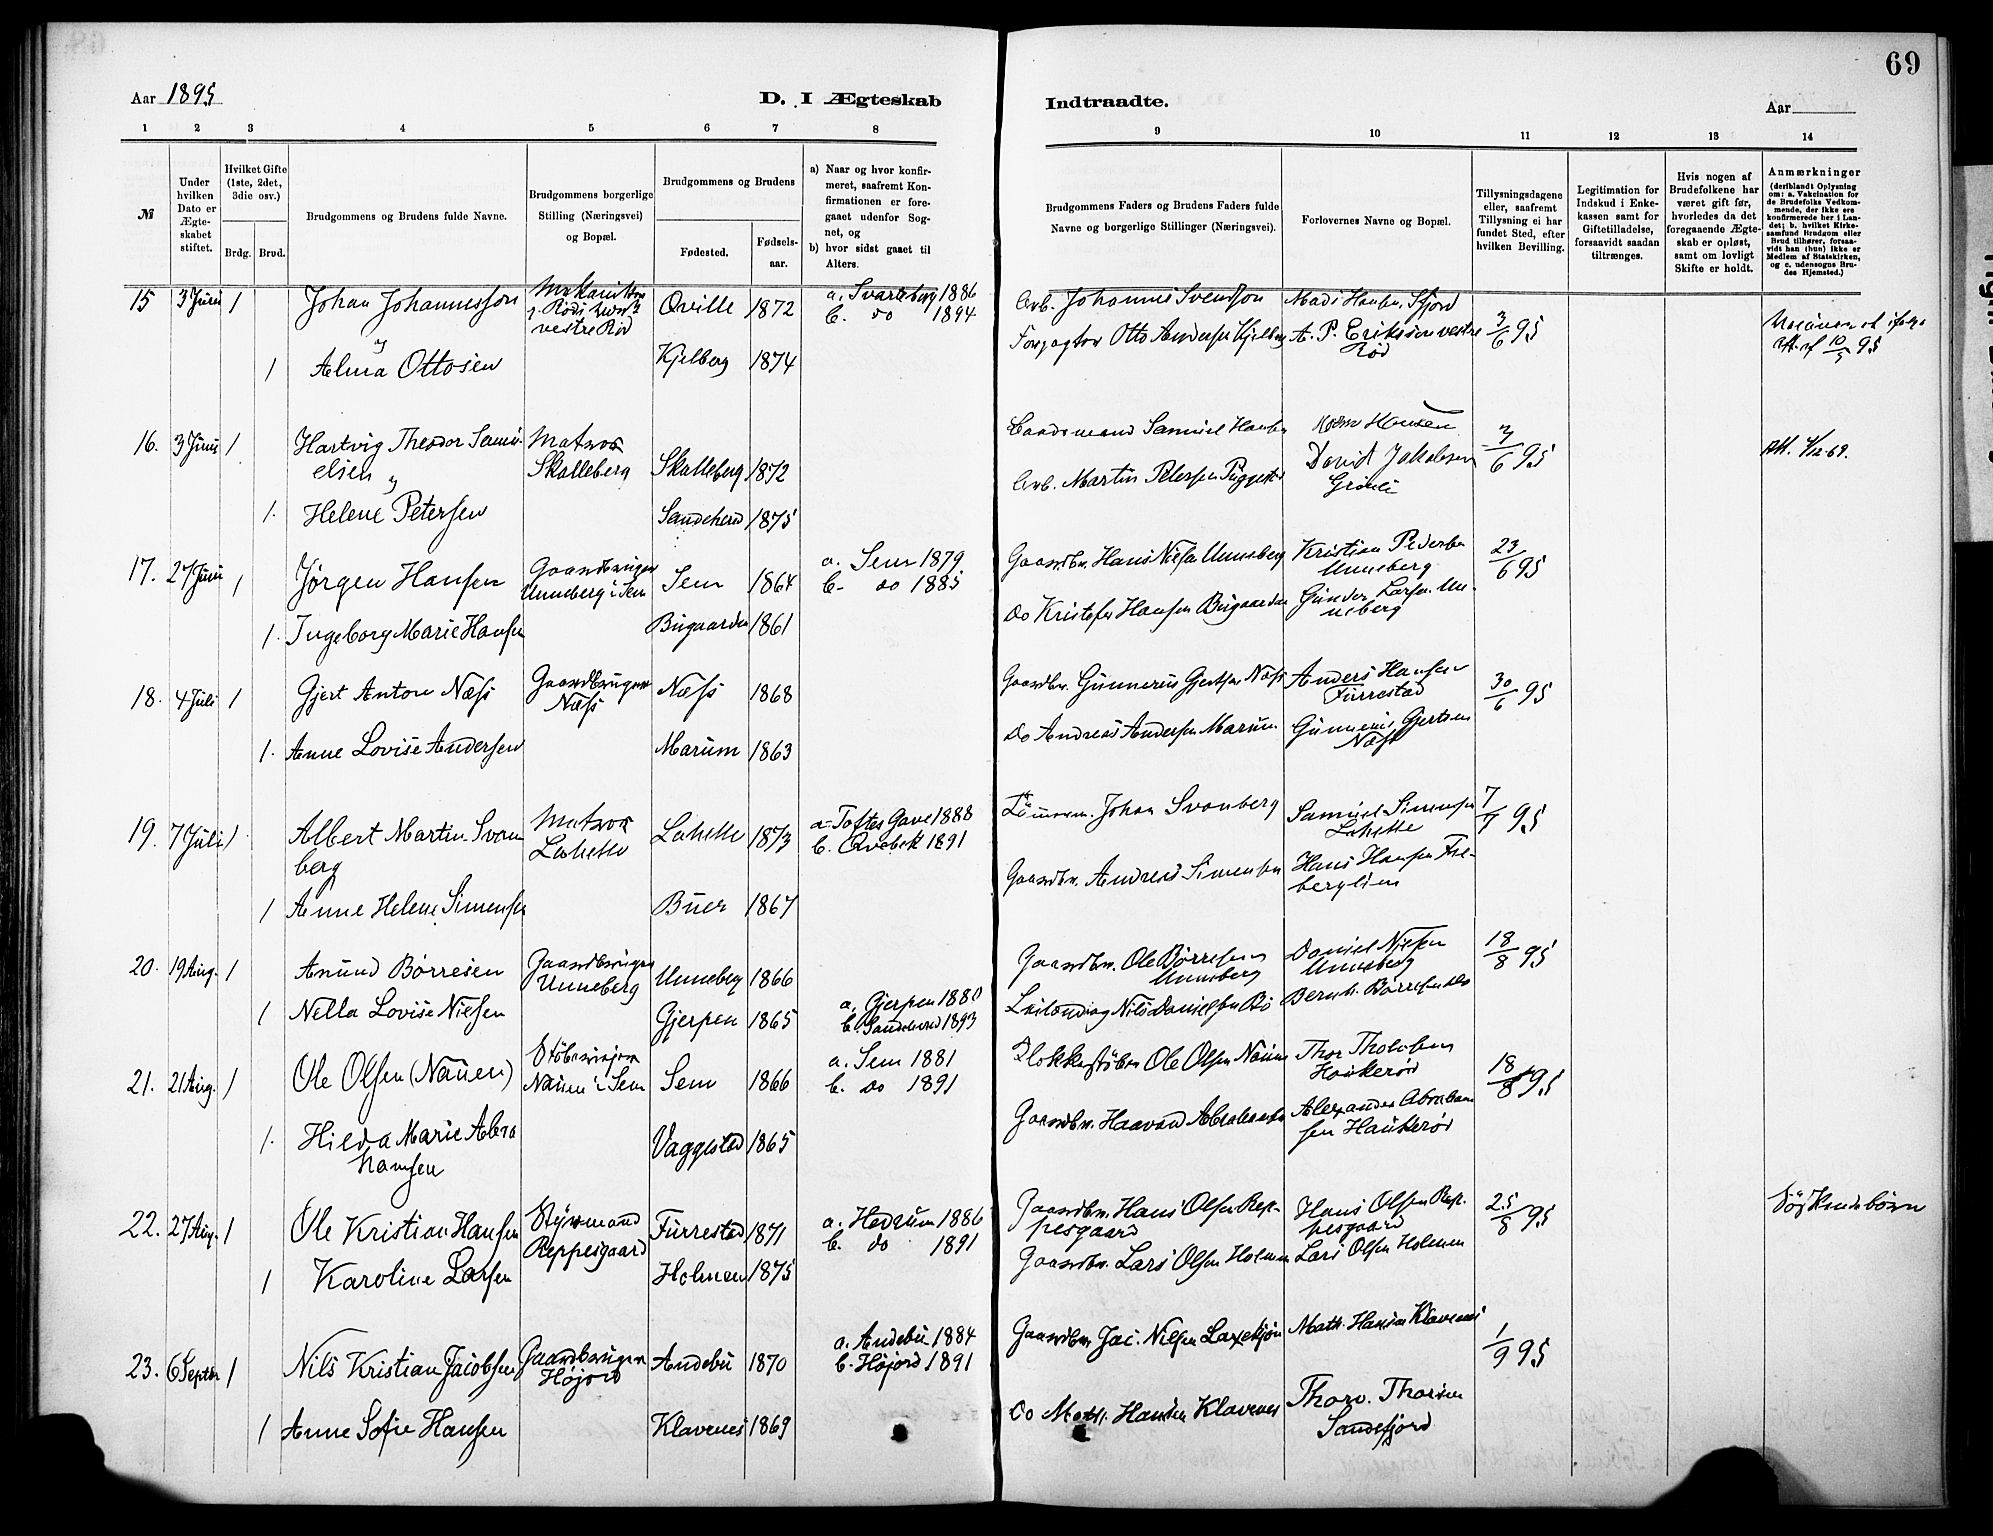 69
Aar 1895
D. I Ægteskab
Indtraadte.
Aar
1 2 3 4 5 6 7 8
9 10 11 12 13 14
№
Under hvilken Dato er Ægteskabet stiftet.
Hvilket Gifte (1ste, 2det, 3die osv.)
Brdg. Brud.
Brudgommens og Brudens fulde Navne.
Brudgommens borgerlige Stilling (Næringsvei) og Bopæl.
Brudgommens og Brudens
Fødested.
Fødselsaar.
a) Naar og hvor konfirmeret, saafremt Konfirmationen er foregaaet udenfor Sognet, og
b) hvor sidst gaaet til Alters.
Brudgommens Faders og Brudens Faders fulde Navne og borgerlige Stillinger (Næringsvei).
Forlovernes Navne og Bopæl.
Tillysningsdagene eller, saafremt Tillysning ei har fundet Sted, efter hvilken Bevilling.
Legitimation for Indskud i Enkekassen samt for Giftetilladelse, forsaavidt saadan tiltrænges.
Hvis nogen af Brudefolkene har været gift før, hvorledes da det foregaaende Ægteskab er opløst, samt om lovligt Skifte er holdt.
Anmærkninger
(deriblandt Oplysning om: a. Vakcination for de Brudefolks Vedkommende, der ikke ere konfirmerede her i Landet; b. hvilket Kirkesamfund Brudgom eller Brud tilhører, forsaavidt han (hun) ikke er Medlem af Statskirken, og c. udensogns Brudes Hjemsted.)
15 3 Juni 1 Johan Johannesson
vestre Rød
Qville 1872
a. Svarteborg 1886
b. do 1894
Arb. Johannes Svendson
Mads Hansen, Sfjord
3/6 95
&
1 Alma Ottosen Kjelberg 1874
Forpagter Otto Andersen Kjelberg
A. P. Eriksson vestre Rød
16. 3 Juni 1 Hartvig Theodor Samuelsen
&
Matros Skalleberg
Skalleberg 1872
Samuel Hansen
Hansen
3/6 95
Att. 4/12 69.
1. Helene Petersen Sandeherd 1875
Arb. Martin Petersen
David Jakobsen
17. 27 Juni 1 Jørgen Hansen
Gaardbruger Unneberg i Sem
Sem 1864
a. Sem 1879.
b. do 1885
Gaardbr. Hans Nielsen Unneberg
Kristian Pedersen Unneberg
23/6 95
1. Ingeborg Marie Hansen Bugaarden 1861
Do Kristofer Hansen Bugaarden
Gunder Larsen Unneberg
18. 4 Juli 1 Gjert Anton Næss
Gaardbruger Næss
Næss 1868
Gaardbr. Gunnerus Gjertsen Næss
Anders Hansen Furrestad
30/6 95
1. Anne Lovise Andersen Marum 1863
Do Andreas Andersen Marum
Gunnerus Gjertsen Næss
19. 7 Juli 1 Albert Martin Svanberg
Matros Lahelle
Lahelle 1873
a. Toftes Gave 1888
b. Qvebek 1891
Tømmerm. Johan Svanberg
Samuel Simensen Lahelle
7/7 95
1 Anne Helene Simensen Buer 1867
Gaardbr. Andreas Simensen
Hans Hansen Frebergli­en
20. 19 Aug. 1 Anund Børresen
Gaardbruger Unneberg
Unneberg 1866
Gaardbr. Ole Børresen Unneberg
Daniel Nielsen Unneberg
18/8 95
1 Nella Lovise Nielsen Gjerpen 1865
a. Gjerpen 1880
b. Sandeherd 1893
Leilending Nils Danielsen Bø
Bernh. Børresen do
21. 21 Aug. 1 Ole Olsen (Nauen)
Nauen i Sem
Sem 1866
a. Sem 1881
b. do 1891
Klokkestøber Ole Olsen Nauen
Thor Tholvsen Haukerød
18/8 95
1. Hilda Marie Abrahamsen Vaggestad 1865
Gaardbr. Haavard Abrahamsen
Alexander Abrahamsen Haukerød
22. 27 Aug. 1 Ole Kristian Hansen
Styrmand Reppesgaard
Furrestad 1871
a. Hedrum 1886
b. do 1891
Gaardbr. Hans Olsen Reppesgaard
Hans Olsen Reppesgaard
25/8 95
Søskendebørn
1 Karoline Larsen Holmen 1875
Gaardbr. Lars Olsen Holmen
Lars Olsen Holmen
23. 6 Septbr 1 Nils Kristian Jacobsen
Gaardbruger Højord
Andebu 1870
a. Andebu 1884
b. Højord 1891
Gaardbr. Jac. Nielsen Laxekjøn
Math. Hansen Klavenes
1/9 95
1 Anne Sofie Hansen Klavenes 1869
Do Math. Hansen Klavenes
Thorv. Thorsen Sandefjord